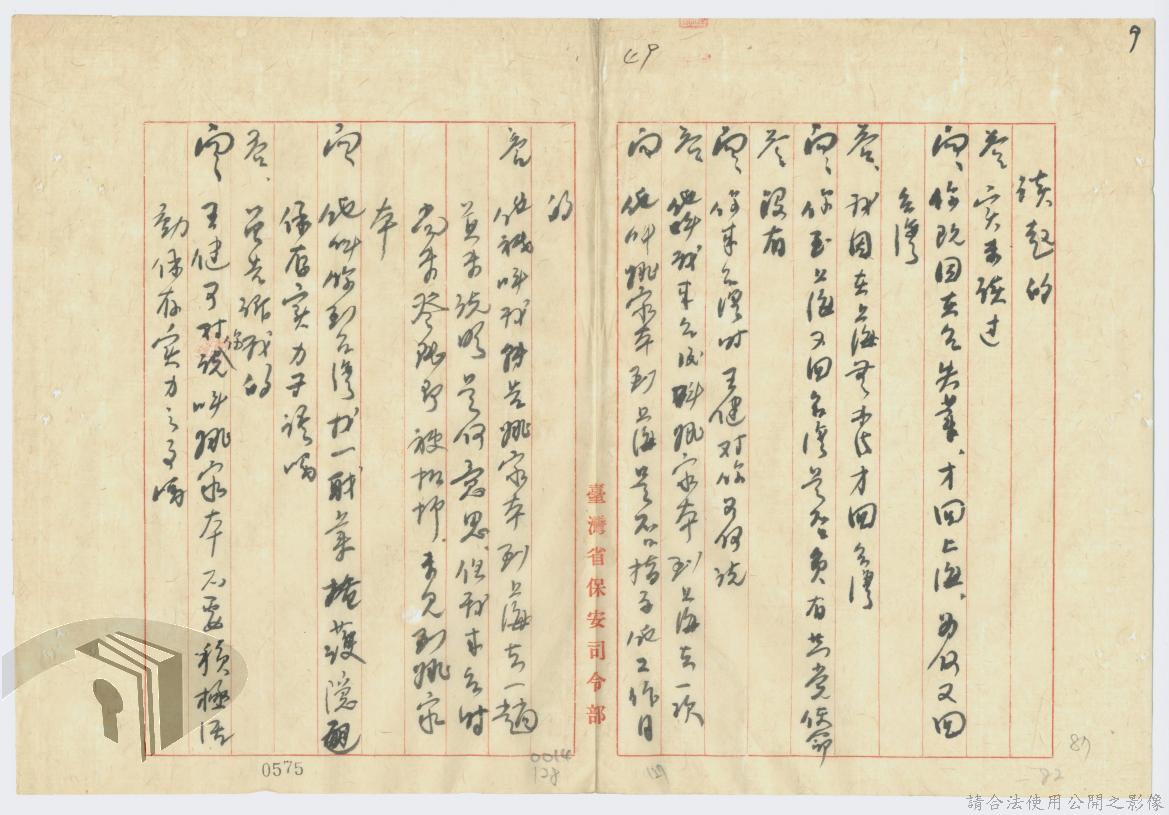 9
49
談起的
答、實未談過
問、你既因在台失業、才回上海、為何又回
台灣
答、我因在上海無办法才回台灣
問、你至上海又回台灣是否負有共党使命
答、沒有
問、你來台灣時王健对你有何説
答、他叫我來台後叫姚家本到上海去一次
問、他叫姚家本到上海是否指示他工作目
的
答、他祗叫我轉告姚家本到上海去一趟
並未説明是何意思、但我來台時
尚未登陸即被扣押、未見到姚家
本
問、他叫你到台灣找一職業掩護隱匿
保存實力等語嗎
答、曾告訴我的
問、王健可对你説叫姚家本不要積極活
動保存實力之事嗎
臺灣省保安司令部
0575
0014
128
127
87
82
請合法使用公開之影像